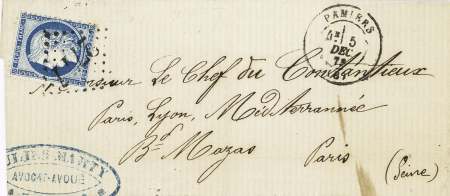 PAMIERS
4E 5
DEC
Monsieur Le Chef du Contentieux
Paris, Lyon, Méditerrannée
Bd Mazas Paris (Seine)
AVOCAT-AVOUÉ